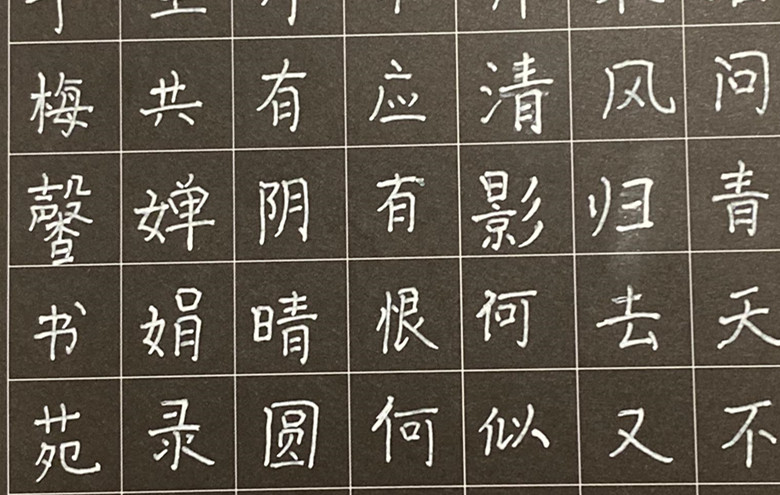 问青天不
风归去又
清影何似
应有恨何
有阴晴圆
共婵娟录
梅馨书苑